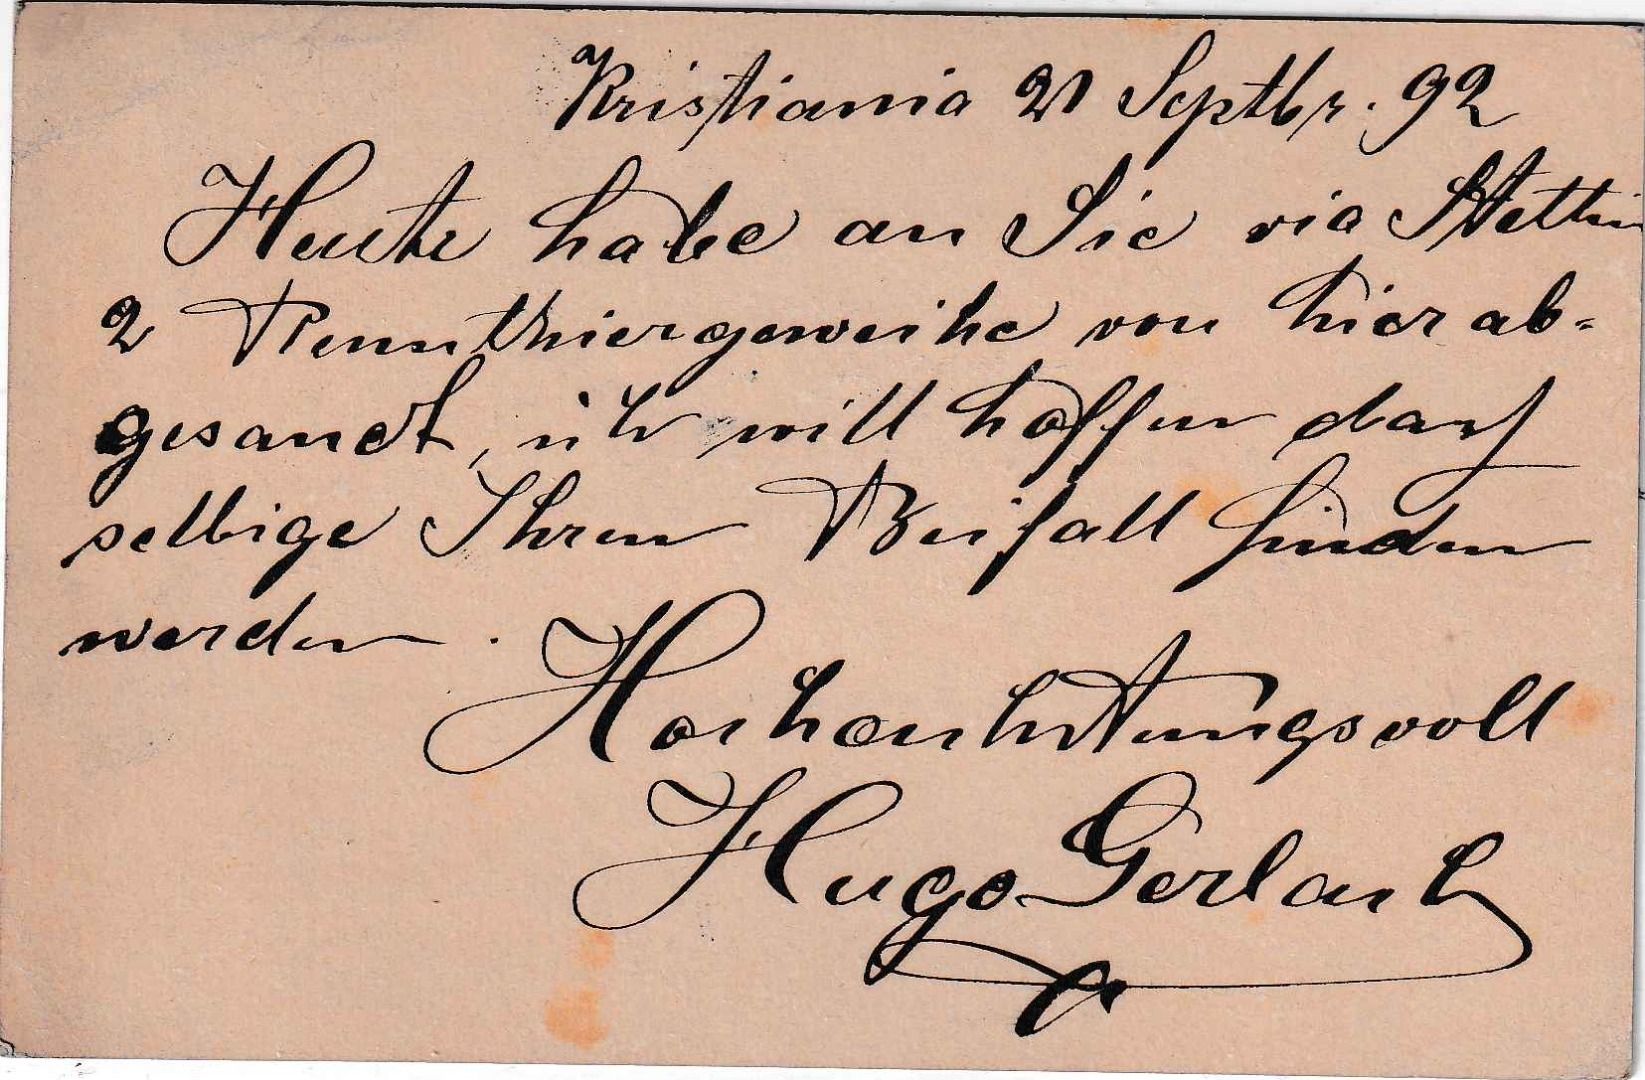 Kristiania 21 Septbr. 92
Heute habe an Sie via Stettin
2 Rennthiergeweihe von hier ab=
gesandt, ich will hoffen das
selbige Ihren Beifall finden
werden.
Hochachtungsvoll
Hugo Gerlach